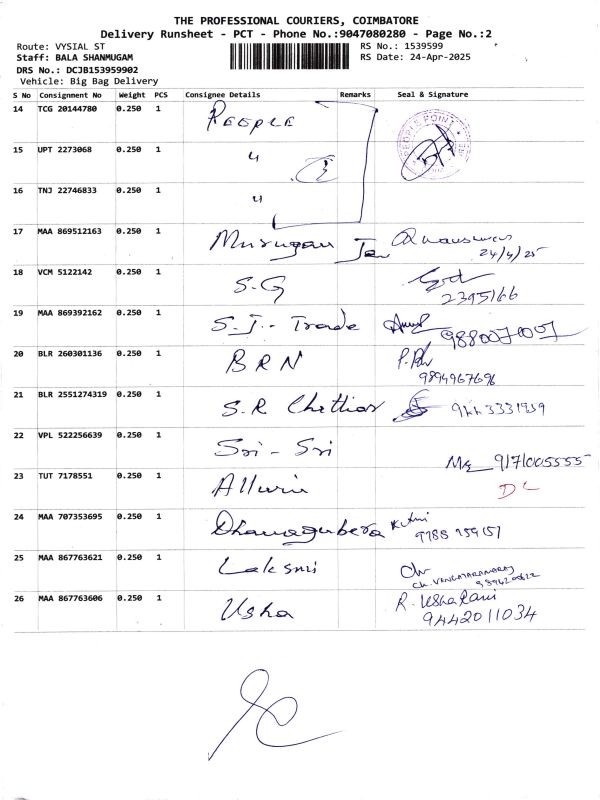 THE PROFESSIONAL COURIERS, COIMBATORE
Delivery Runsheet - PCT - Phone No.:9047080280 - Page No.:2
Route: VYSIAL ST RS No.: 1539599
Staff: BALA SHANMUGAM RS Date: 24-Apr-2025
DRS No.: DCJB153959902
Vehicle: Big Bag Delivery
S No Consignment No Weight PCS Consignee Details Remarks Seal & Signature
14 TCG 20144780 0.250 1 People
PEOPLE POINT
15 UPT 2273068 0.250 1 "
16 TNJ 22746833 0.250 1 "
17 MAA 869512163 0.250 1 Murugan
24/4/25
18 VCM 5122142 0.250 1 S.G
2395166
19 MAA 869392162 0.250 1 S.J. - Trade
20 BLR 260301136 0.250 1 BRN
9894967696
21 BLR 2551274319 0.250 1 S.R Chettiar
22 VPL 522256639 0.250 1 Sri - Sri
23 TUT 7178551 0.250 1
DL
24 MAA 707353695 0.250 1 Dhanagubera
25 MAA 867763621 0.250 1
26 MAA 867763606 0.250 1 Usha R. Usha Rani
9442011034